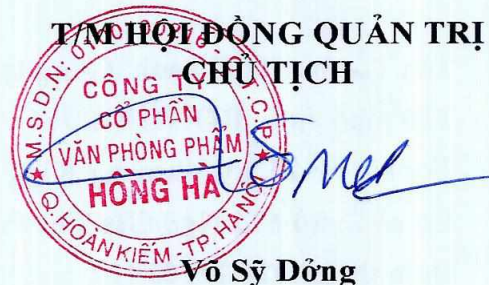 T/M HỘI ĐỒNG QUẢN TRỊ
CHỦ TỊCH
CÔNG TY
CỔ PHẦN
VĂN PHÒNG PHẨM
HỒNG HÀ
M.S.D.N: C.T.C.P
Q. HOÀN KIẾM - TP. HÀ NỘI
Võ Sỹ Dởng